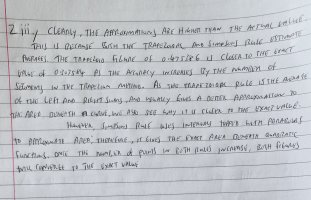 2 iii, Clearly, the approximations are higher than the actual value.
This is because both the trapezoidal and Simpsons rule estimate
The trapezoid figure of is closer to the exact
value of As the accuracy increases by the number of
segments in the trapezium method. As the trapezoidal rule is the average
of the left and right sums, and usually gives a better approximation to
the area beneath a curve, we also see why it is closer to the exact value.
However, Simpsons Rule uses intervals topped with parabolas
to approximate area, therefore, it gives the exact area beneath quadratic
functions. Once the number of points in both rules increase, both figures
will converge to the exact value